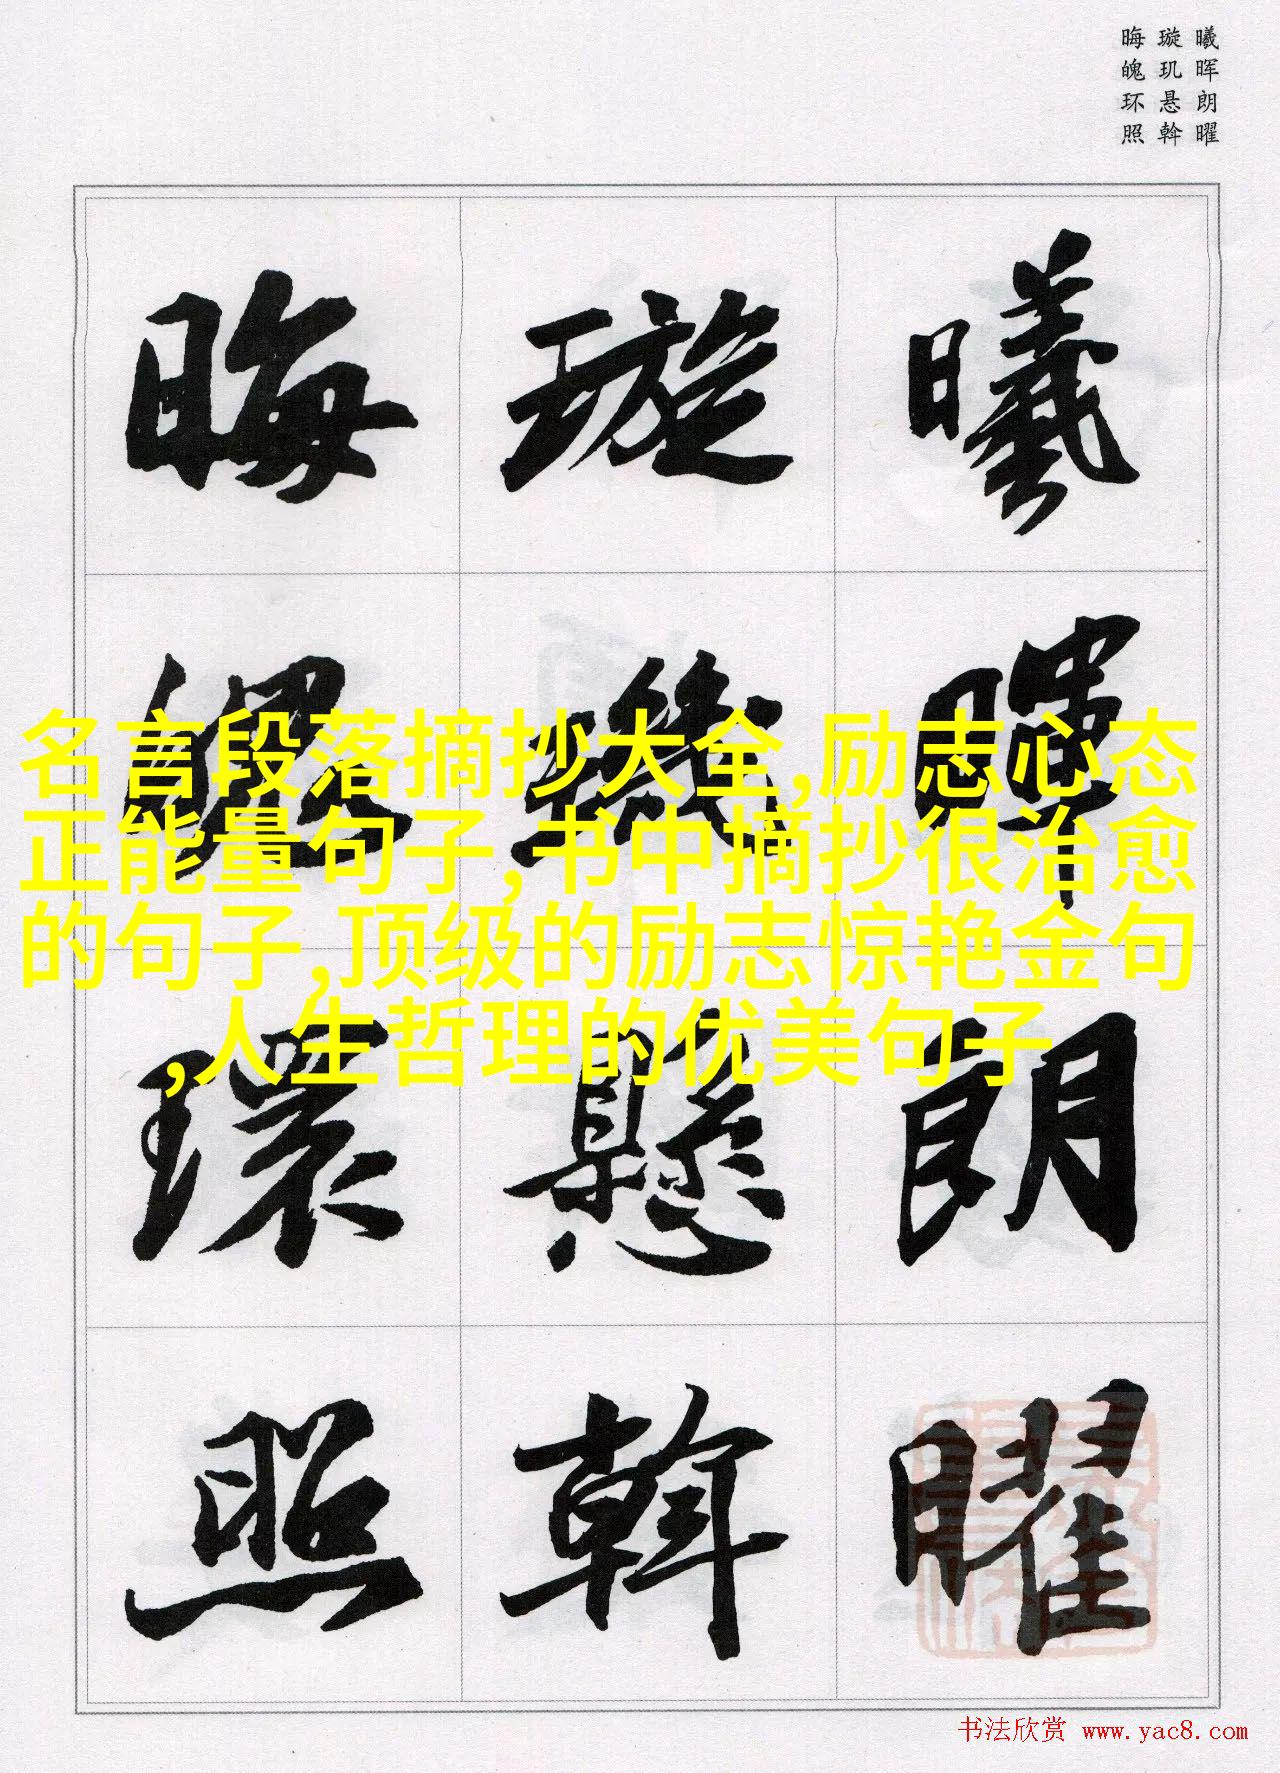 曦晖朗曜
璇玑悬斡
晦魄环照
曦暉朗曜
璇璣懸斡
晦魄環照
名言段落摘抄大全,励志心态
正能量句子,书中摘抄很治愈
的句子,顶级的励志惊艳金句
,人生哲理的优美句子
书法欣赏 www.yac8.com